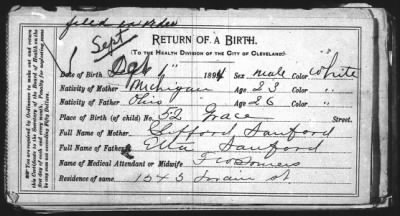 filed in order
Sept
RETURN OF A BIRTH.
(TO THE HEALTH DIVISION OF THE CITY OF CLEVELAND)
Date of Birth 1894 Sex male Color White
Nativity of Mother Michigan Age 23 Color "
Nativity of Father Ohio Age 26 Color "
Place of Birth (of child) No. 52 Grace Street.
Full Name of Mother Clifford Sanford
Full Name of Father Etta Sanford
Name of Medical Attendant or Midwife F W Somers
Residence of same 1545 Main st.